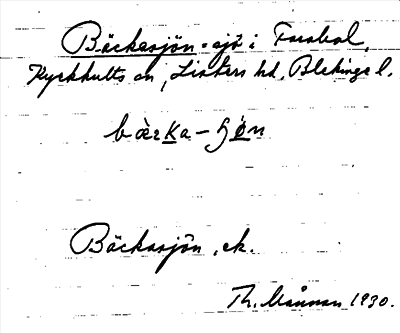 Bäckasjön = sjö i Farabol,
Kyrkhults sn, Listers hd, Blekinge l.
bàrka-ʃǿn
Bäckasjön, ek.
Th. Månsson 1930.